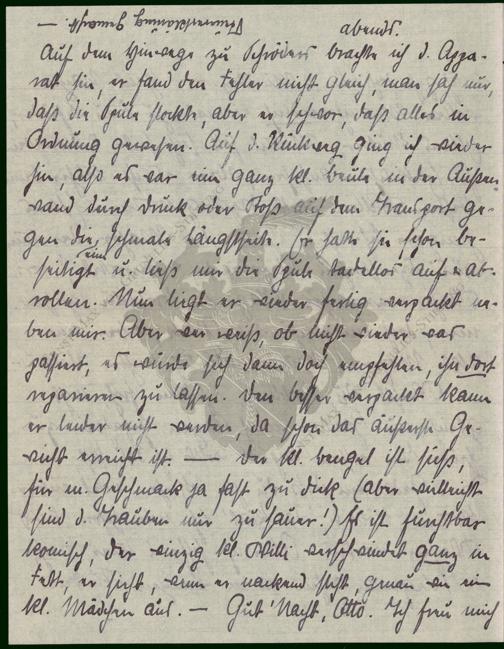 abends.
Auf dem Hinwege zu Schröders brachte ich d. Appa-
rat hin, er fand den Fehler nicht gleich, man sah nur,
daß die Spule stockte, aber er schwor, daß alles in
Ordnung gewesen. Auf d. Rückweg ging ich wieder
hin, also es war eine ganz kl. Beule in der Außen-
wand durch Druck oder Stoß auf dem Transport ge-
gen die schmale Längstseite. Er hatte sie schon be-
seitigt u. ließ nun die Spule tadellos auf u ab-
rollen. Nun liegt er wieder fertig verpackt ne-
ben mir. Aber wer weiß, ob nicht wieder was
passiert, es würde sich dann doch empfehlen, ihn dort
reparieren zu lassen. Denn besser verpackt kann
er leider nicht werden, da schon das äußerste Ge-
wicht erreicht ist. — Der kl. Bengel ist süß,
für m. Geschmack ja fast zu dick (aber vielleicht
sind d. Trauben nur zu sauer!) Es ist furchtbar
komisch, der winzig kl. Willi verschwindet ganz in
Fett, er sieht, wenn er nackend steht, genau wie ein
kl. Mädchen aus. — Gut' Nacht, Otto. Ich freu mich